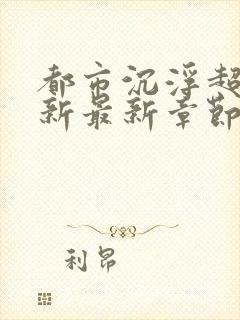 都市沉浮超
新最新章节
利昂